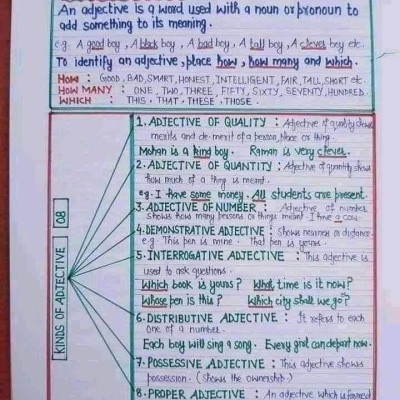 An adjective is a word used with a noun or pronoun to
add something to its meaning.
e.g. A good boy, A black boy, A bad boy, A tall boy, A clever boy etc.
To identify an adjective, place how, how many and which.
HOW : GOOD, BAD, SMART, HONEST, INTELLIGENT, FAIR, TALL, SHORT etc.
HOW MANY : ONE, TWO, THREE, FIFTY, SIXTY, SEVENTY, HUNDRED.
WHICH : THIS, THAT, THESE, THOSE.
KINDS OF ADJECTIVE 08
1. ADJECTIVE OF QUALITY : Adjective of quality shows
merits and de-merit of a person, place or thing.
Mohan is a kind boy. Raman is very clever.
2. ADJECTIVE OF QUANTITY : Adjective of quantity shows
how much of a thing is meant.
eg. I have some money. All students are present.
3. ADJECTIVE OF NUMBER : Adjective of number
shows how many persons or things meant. I have a cow.
4. DEMONSTRATIVE ADJECTIVE : Shows nearness or distance.
e.g. This pen is mine. That pen is yours.
5. INTERROGATIVE ADJECTIVE : This adjective is
used to ask questions.
Which book is yours? What time is it now?
Whose pen is this? Which city shall we go?
6. DISTRIBUTIVE ADJECTIVE : It refers to each
one of a number.
Each boy will sing a song. Every girl can depart now.
7. POSSESSIVE ADJECTIVE : This adjective shows
possession. (shows the ownership)
8. PROPER ADJECTIVE : An adjective which is formed